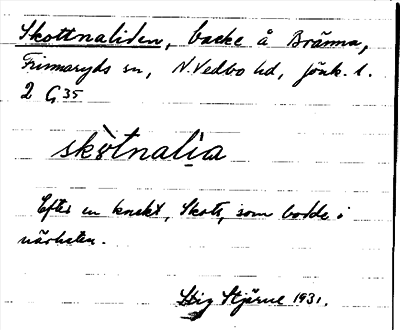 Skottnaliden, backe å Bränna,
Frinnaryds sn, N. Vedbo hd, Jönk. l.
2 G 35
skòtnalia
Efter en knekt, Skott, som bodde i
närheten.
Stig Stjärne 1931.